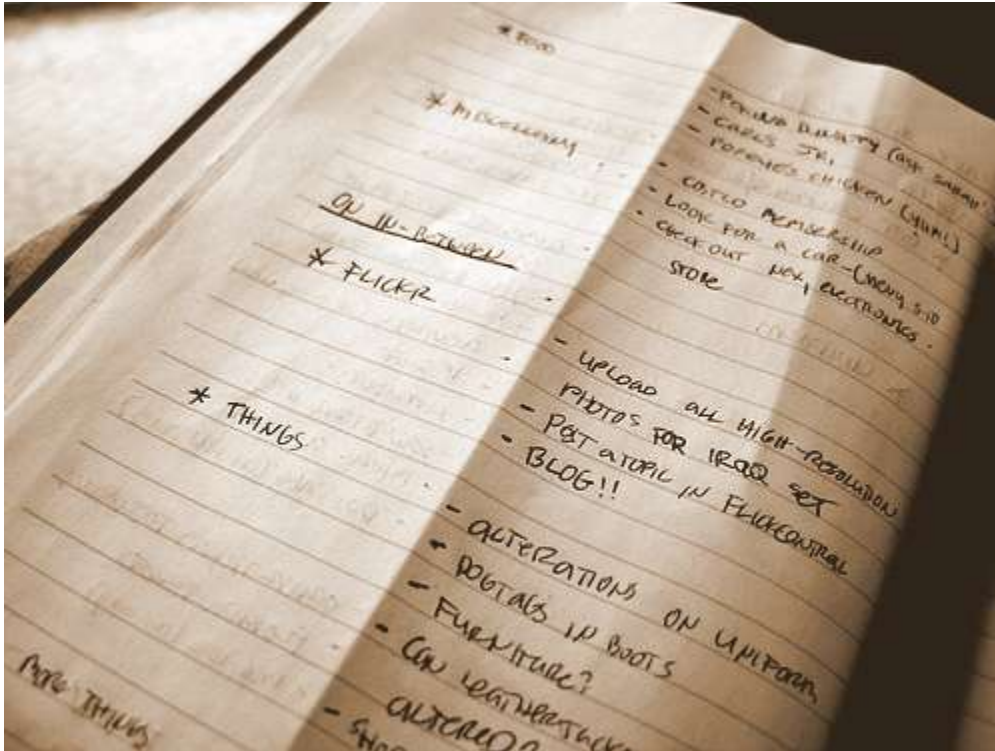 * FOOD
- PEKING DYNASTY (ASK
- CARL'S JR.
- POPEYE'S CHICKEN (YUM!)
* MISCELLANY
- COSTCO MEMBERSHIP
- LOOK FOR A CAR - CHEVY S-10
- CHECK OUT NEX, ELECTRONICS
STORE
ON IN-BETWEEN
* FLICKR
- UPLOAD ALL HIGH-RESOLUTION
PHOTOS FOR IRAQ SET
- POST A TOPIC IN FLICKRCENTRAL
- BLOG!!
* THINGS
- ALTERATIONS ON UNIFORM
- DOGTAGS IN BOOTS
- FURNITURE?
- CAN
ALTERED?
MORE THINGS